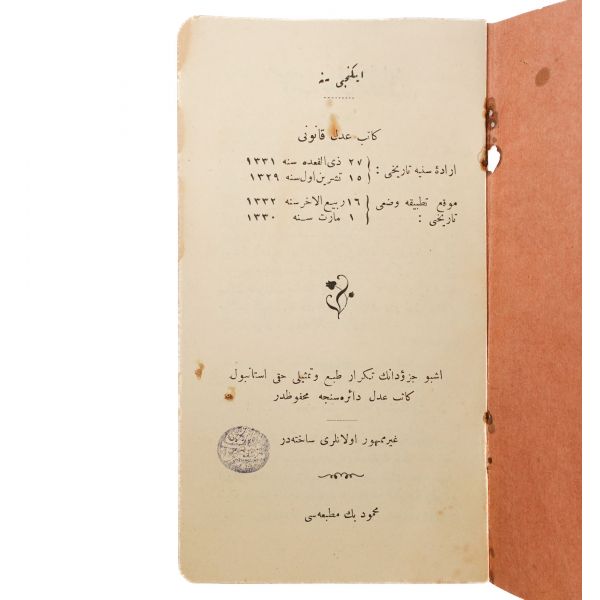 ایكنجی
كاتب عدل قانونی
ارادهٔ سنیه تاریخی : { ٢٧ ذی القعده سنه ١٣٣١
١٥ تشرین اول سنه ١٣٢٩
موقع تطبیقه وضعی { ١٦ ربیع الاخر سنه ١٣٣٢
تاریخی : ١ مارت سنه ١٣٣٠
اشبو جزؤدانك تكرار طبع وتمثیلی حقی استانبول
كاتب عدل دائره‌سنجه محفوظدر
غیر ممهور اولانلری ساخته‌در
محمود بك مطبعه‌سی